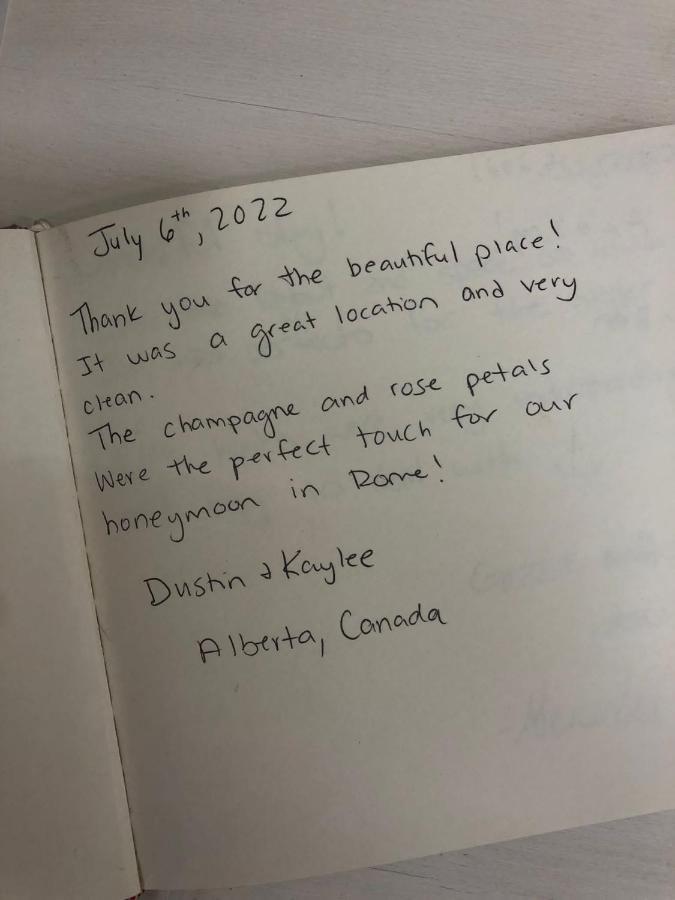 July 6th, 2022
Thank you for the beautiful place!
It was a great location and very
clean.
The champagne and rose petals
Were the perfect touch for our
honeymoon in Rome!
Dustin & Kaylee
Alberta, Canada